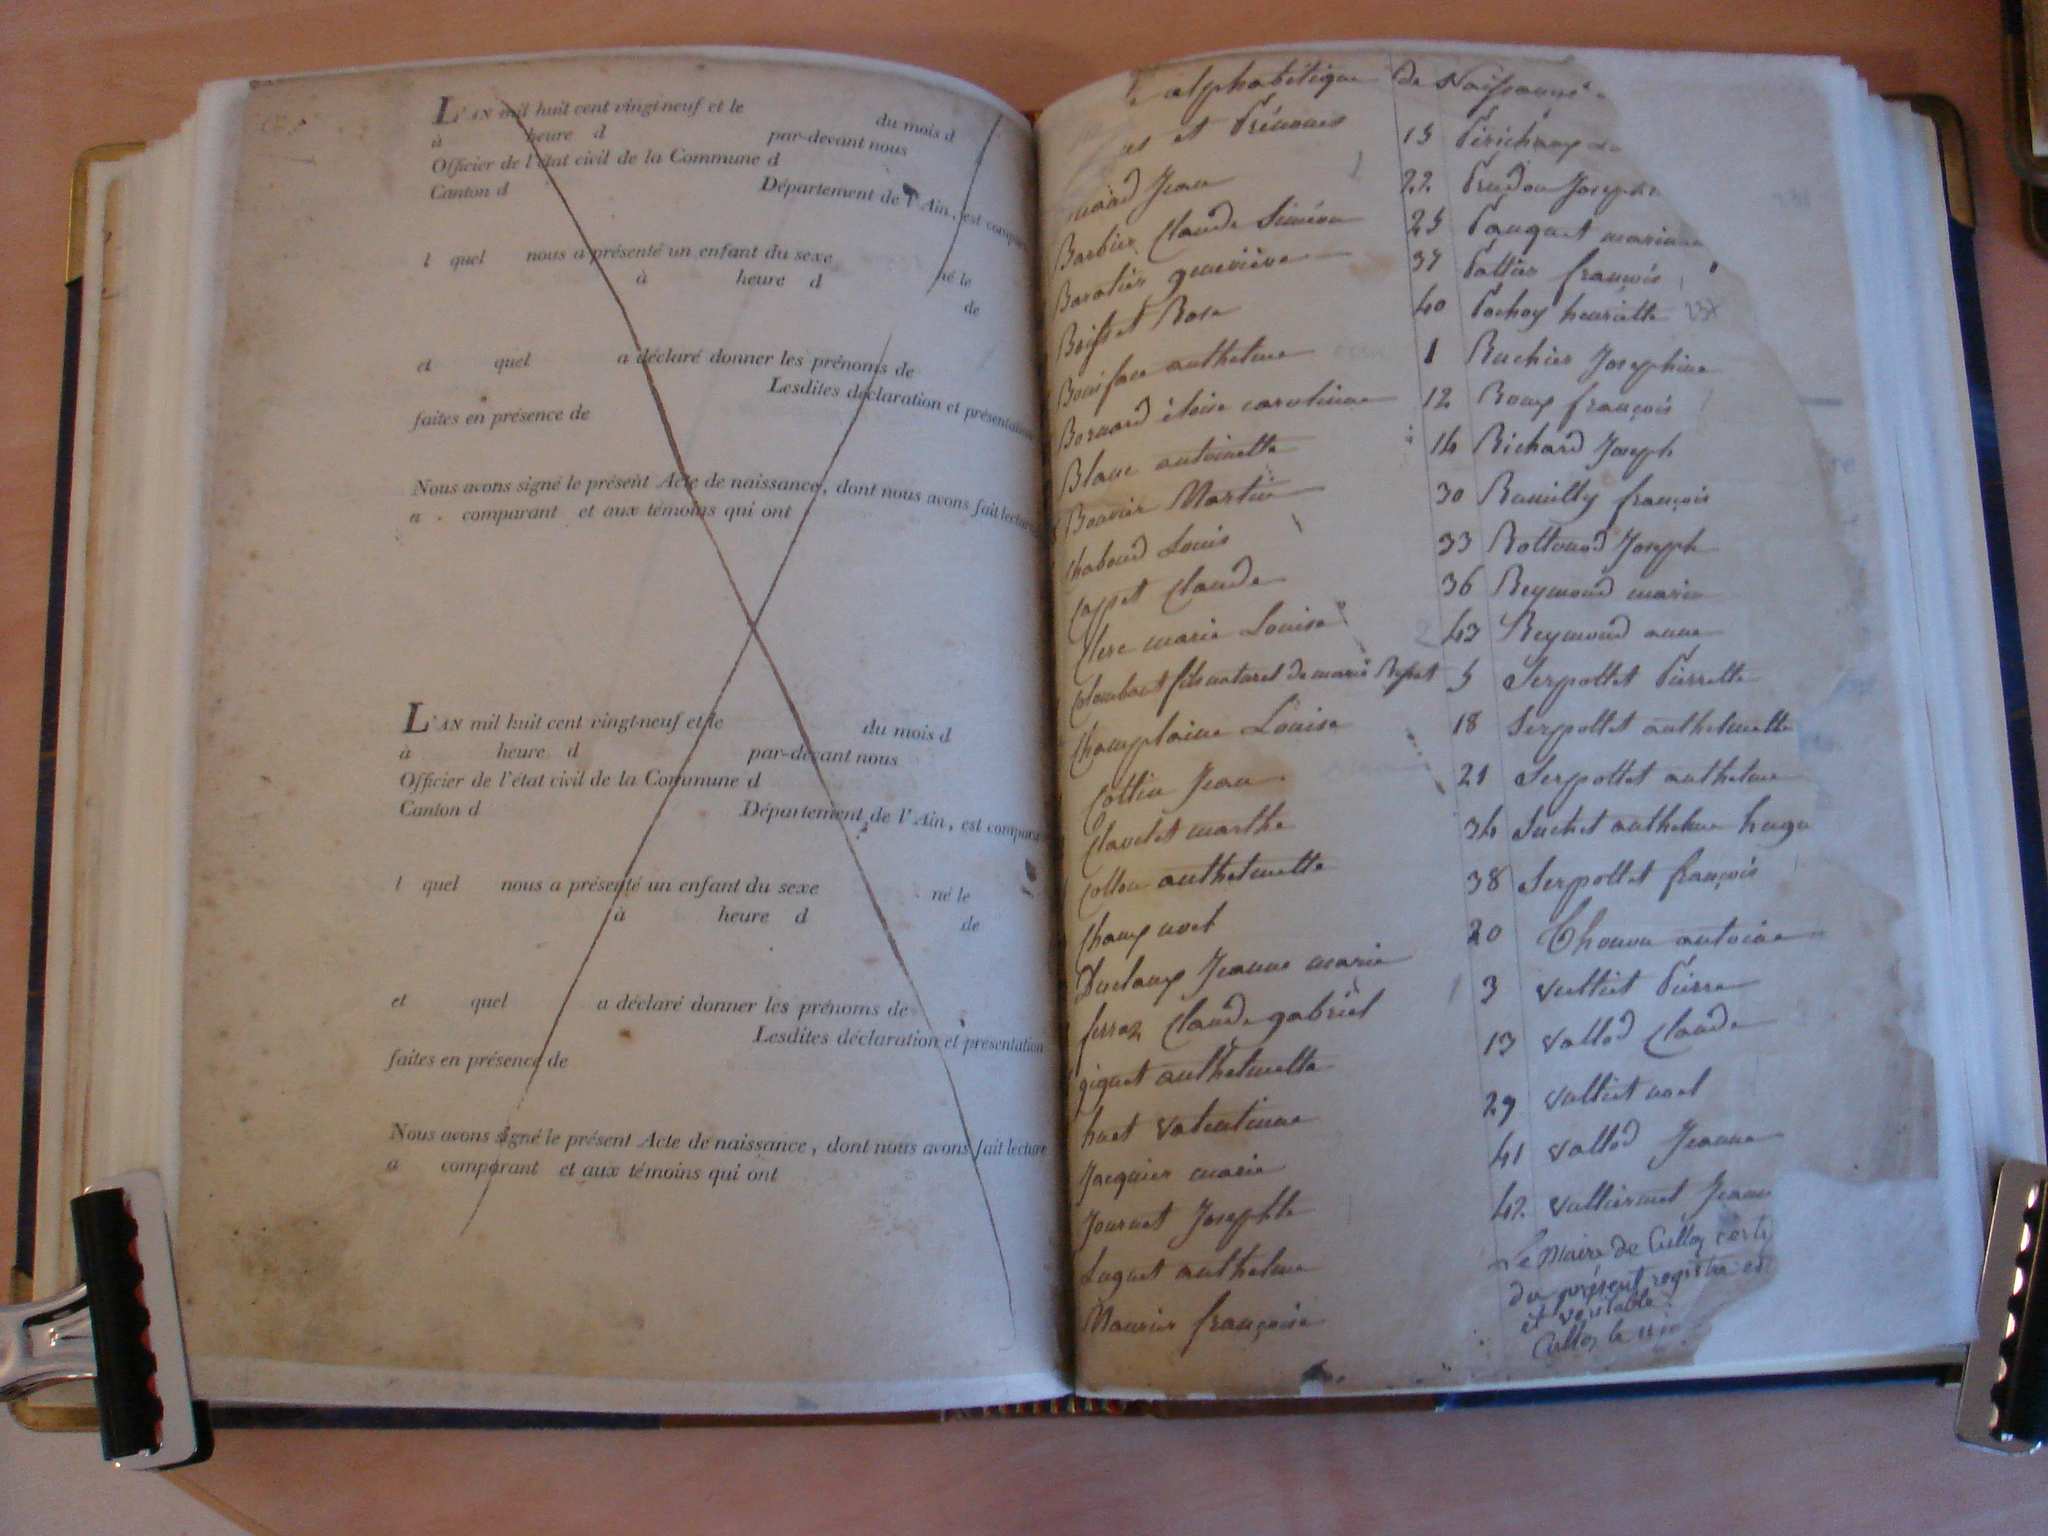 L'AN mil huit cent vingt-neuf et le du mois d
à heure d par-devant nous
Officier de l'état civil de la Commune d
Canton d Département de l'Ain, est comparu
l quel nous a présenté un enfant du sexe né le
à heure d de
et quel a déclaré donner les prénoms de
Lesdites déclaration et présentation
faites en présence de
Nous avons signé le présent Acte de naissance, dont nous avons fait lecture
a comparant et aux témoins qui ont
L'AN mil huit cent vingt-neuf et le du mois d
à heure d par-devant nous
Officier de l'état civil de la Commune d
Canton d Département de l'Ain, est comparu
l quel nous a présenté un enfant du sexe né le
à heure d de
et quel a déclaré donner les prénoms de
Lesdites déclaration et présentation
faites en présence de
Nous avons signé le présent Acte de naissance, dont nous avons fait lecture
a comparant et aux témoins qui ont
alphabétique de Naissances
et Prénoms
Jean
Barbier Claude Siméon
Baratier geneviève
Brisset Rose
Boniface anthelme
Bornard éloise caroline
Blanc antoinette
Bouvier Martin
Chaboud Louis
Coppet Claude
Clerc marie Louise
Colombart fils naturel de marie
Champlaine Louise
Collin Jean
Clavelet marthe
Collon anthelmette
Champ noel
Duclaup Jeanne marie
ferraz Claude gabriel
giguet anthelmette
huet valentinne
Jacquier marie
Journet Josephte
Luguet anthelme
Maurier françoise
15
22 Prudon Joseph
25 Pauguet marianne
37 Pattier françois
40 Pochoy henriette
1 Ruchier Josephine
12 Roup françois
14 Richard Joseph
30 Rumilly françois
33 Joseph
36 Reymond marie
43 Reymond anne
5 Serpollet Pierrette
18 Serpollet anthelmette
21 Serpollet anthelme
34 Suchet anthelme hugu
38 Serpollet françois
20 antoine
3 vulliet Pierre
13 vallod Claude
29 vulliet noel
41 vallod Jeanne
42 vulliermet Jeann
Le Maire de Culloz certi
du présent registre est
et véritable
Culloz le